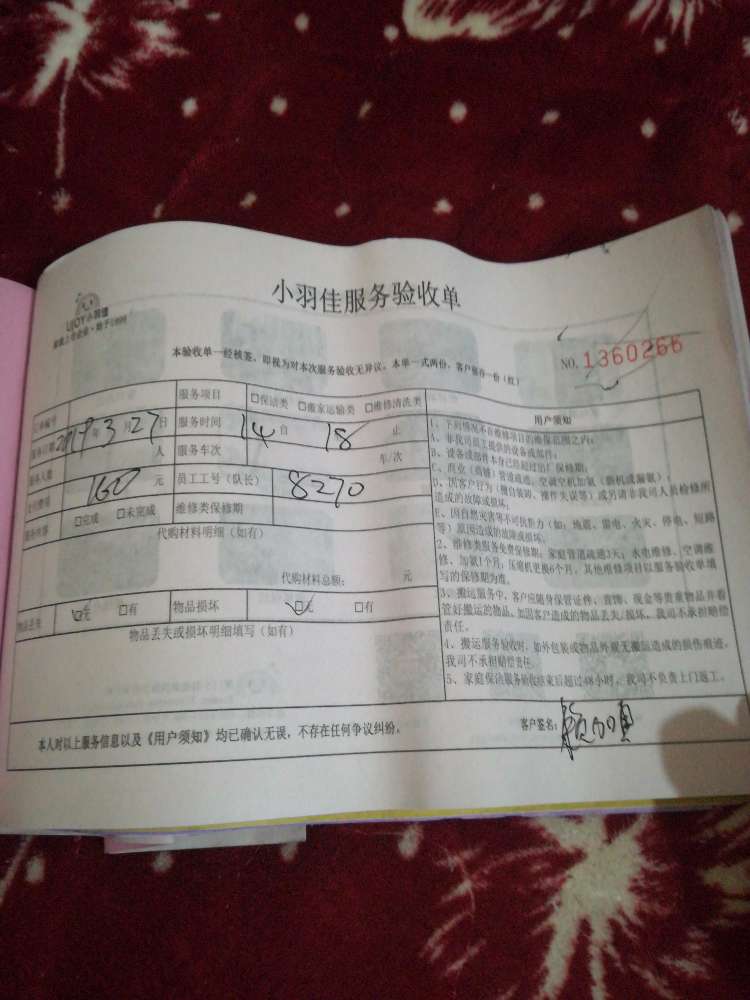 UJOY小羽佳
家政上市企业·始于1998
小羽佳服务验收单
本验收单一经核签，即视为对本次服务验收无异议。本单一式两份，客户留存一份（红）
NO.1360266
订单编号 服务项目 □保洁类 □搬家运输类 □维修清洗类
服务日期 2019年3月27日 服务时间 14 自 18 止
服务人数 人 服务车次 车/次
160 元 员工工号（队长） 8270
服务内容 □完成 □未完成 维修类保修期
代购材料明细（如有）
代购材料总额： 元
物品丢失 ☑无 □有 物品损坏 ☑无 □有
物品丢失或损坏明细填写（如有）
用户须知
1、下列情况不在维修项目的维保范围之内：
A、非我司员工提供的设备或部件；
B、设备或部件本身已经超过出厂保修期；
C、商业（商铺）管道疏通、空调空机加氨（新机或漏氨）；
D、因客户行为（擅自装卸、操作失误等）或另请非我司人员检修所
造成的故障或损坏；
E、因自然灾害等不可抗拒力（如：地震、雷电、火灾、停电、短路
等）原因造成的故障或损坏；
2、维修类服务免费保修期：家庭管道疏通3天；水电维修、空调维
修、加氨1个月，压缩机更换6个月，其他维修项目以服务验收单填
写的保修期为准。
3、搬运服务中，客户应随身保管证件、首饰、现金等贵重物品并看
管好搬运的物品，如因客户造成的物品丢失/损坏，我司不承担赔偿
责任。
4、搬运服务验收时，如外包装或物品外观无搬运造成的损伤痕迹，
我司不承担赔偿责任。
5、家庭保洁服务验收结束后超过48小时，我司不负责上门返工。
本人对以上服务信息以及《用户须知》均已确认无误，不存在任何争议纠纷。
客户签名：